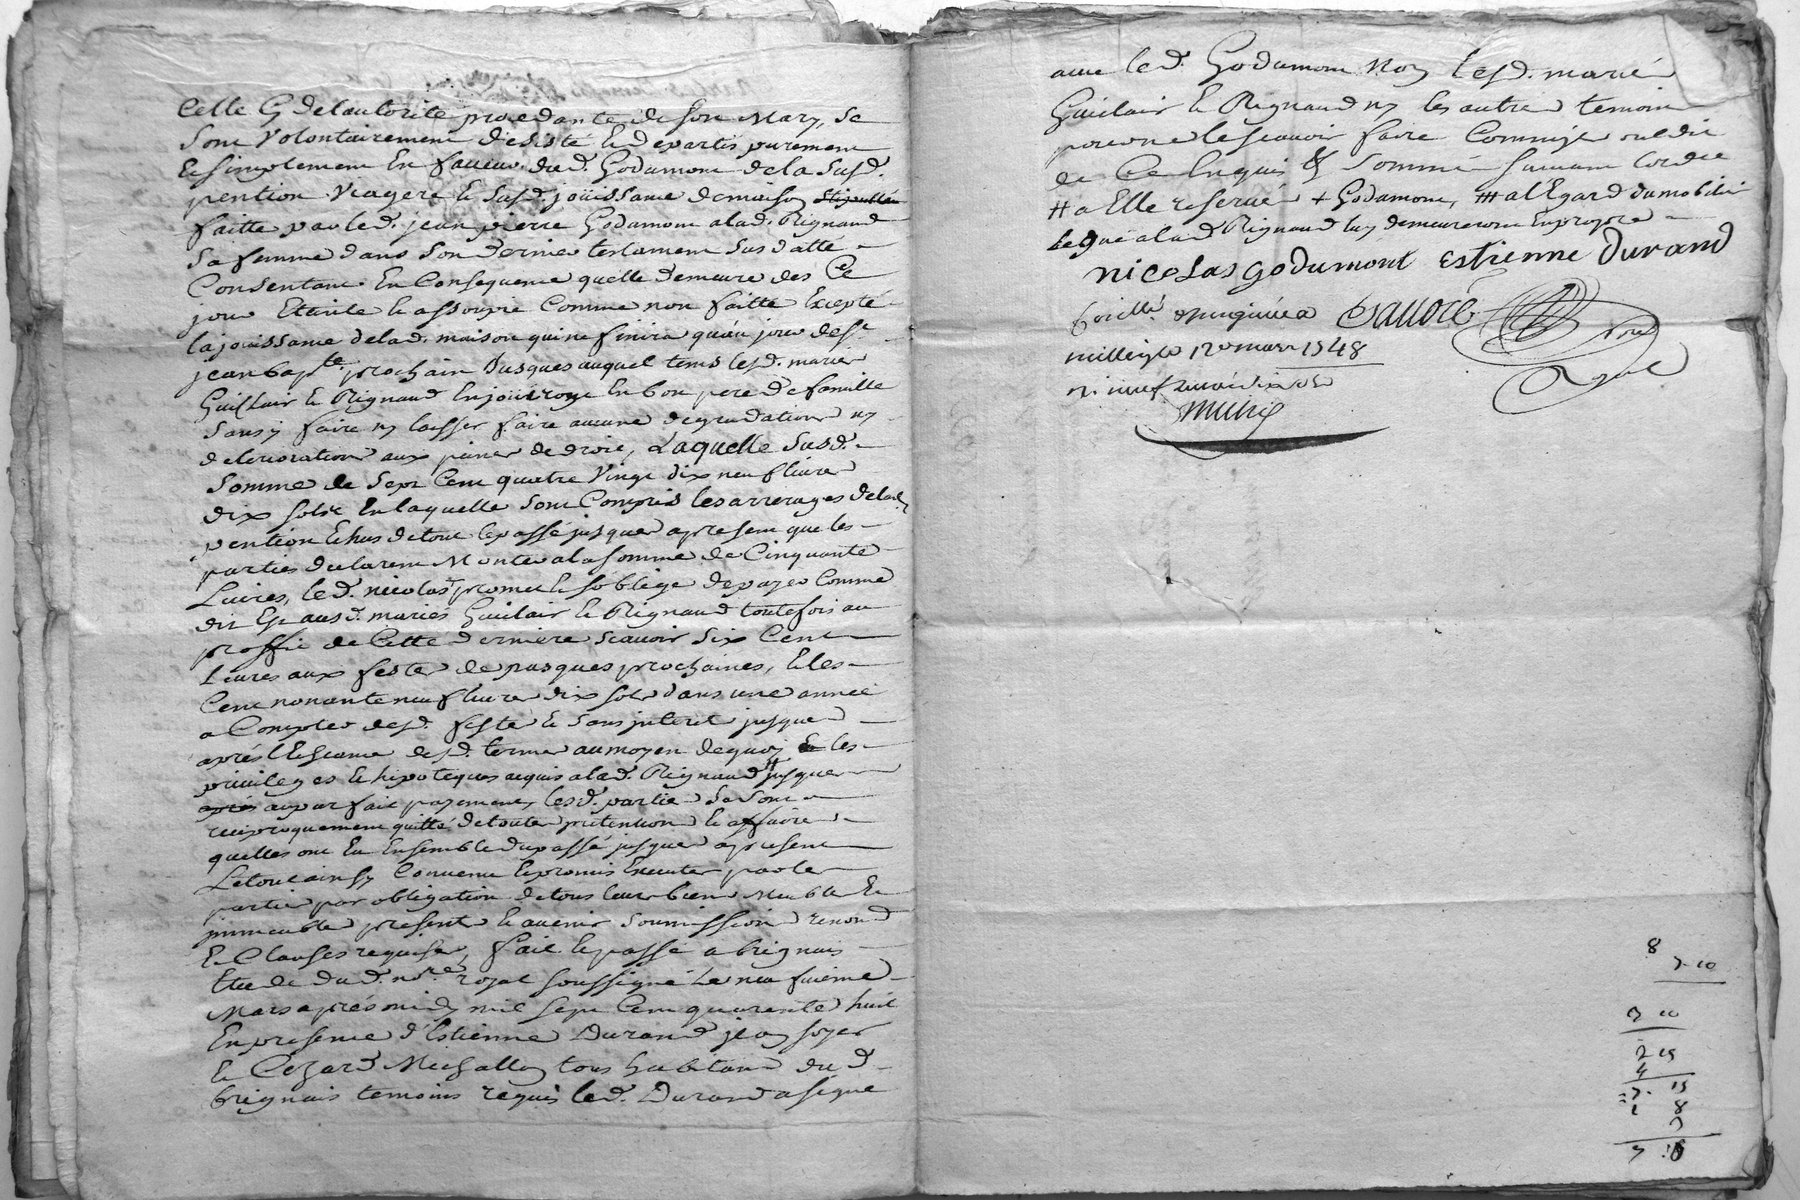 Celle cy de lautorité procedante de son Mary, se
sont volontairement desisté & departis purement
& simplement en faveur dud. Godumont de la susd.
pention viagere & susd. joüissance de maison stipullée
faitte par led. jean pierre Godumont a lad. Rignaud
sa femme dans son dernier testament sus datté
Consentant en Consequence quelle demeure des Ce
jour Eteinte & assoupie Comme non faitte Excepté
la joüissance de lad. maison qui ne finira quau jour de st
jean bapte prochain Jusques auquel tems lesd. mariés
Guillair & Rignaud en joüiront en bon pere de famille
sans y faire ny laisser faire aucune degradation ny
deterioration aux peines de droit, Laquelle susd.
somme de sept Cent quatre vingt dix neuf livres
dix sols en laquelle sont Compris les arrerages de lad.
pention Echus de tout le passé jusques a present que les
parties declarent Monter a la somme de Cinquante
Livres, led. nicolas promet & soblige de payer Comme
dit Est ausd. mariés Guilair & Rignaud toutefois au
proffit de Cette derniere scavoir six Cent
Livres aux festes de pasques prochaines, & les
Cent nonante neuf livres dix sols dans une année
a Compter desd. festes & sans interet jusques
aprés l'Echeance desd. termes au moyen de quoy & les
privileges & hipoteques acquis a lad. Rignaud # jusques
aprés au parfait payement, lesd. parties se sont
reciproquement quitté de toutes pretentions & affaires
quelles ont Eu Ensemble du passé jusques a present
Le tout ainsy Convenu & promis Executer par les
parties par obligation de tous leurs biens Meubles &
immeubles presents & avenir soumissions renond
& Clauses requises, fait & passé a brignais
Etude dud. nore royal soussigné Le neufvieme
Mars aprés midy mil sept Cent quarente huit
En presence d'Estienne Durand jean soyer
& Cesard Michallon tous habitans dud.
brignais temoins requis led. Durand a signé
avec led. Godumont Non lesd. mariés
Guilair & Rignaud ny les autres temoins
pour ne le scavoir faire Comme ils ont dit
de Ce Enquis & sommé suivant lordce
# a Elle reservé + Godumont, ## a l'Egard du mobilier
legué a lad Rignaud luy demeurerons En propre
nicolas godumont estienne durand
Not
Royal
millesept 12 mars 1748
8
7 10
3 10
2 15
4
7 15
1 8